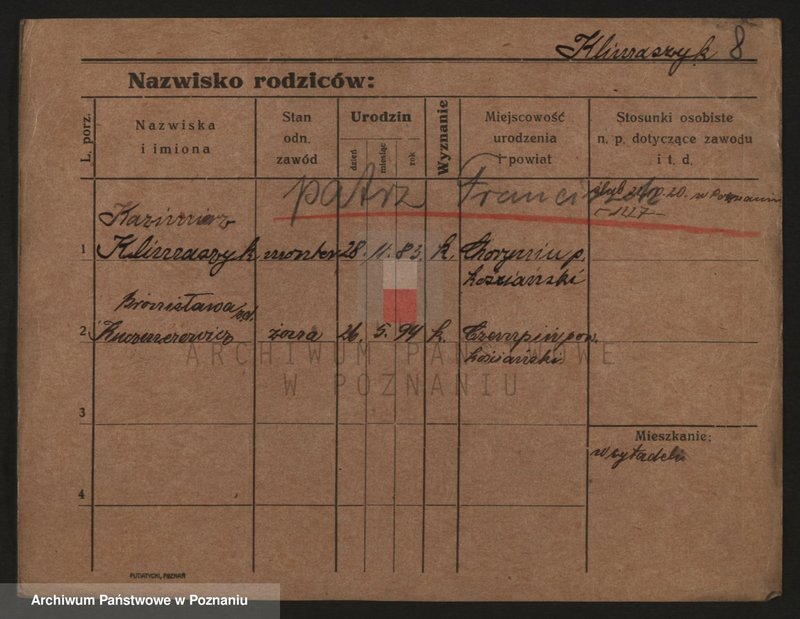 Klimaszyk 8
Nazwisko rodziców:
L. porz.
Nazwiska
i imiona
Stan
odn.
zawód
Urodzin
dzień
miesiąc
rok
Wyznanie
Miejscowość
urodzenia
i powiat
Stosunki osobiste
n. p. dotyczące zawodu
i t. d.
patrz Franciszek
w Poznaniu
Kazimierz
1 Klimaszyk monter 28. 11. 83. k. Choryniu p.
kościański
Bronisława
2 żona 26. 5. 94 k. Czempiń pow.
kościański
3
4
Mieszkanie:
w cytadeli
ARCHIWUM PAŃSTWOWE
W POZNANIU
PUTIATYCKI, POZNAŃ
Archiwum Państwowe w Poznaniu